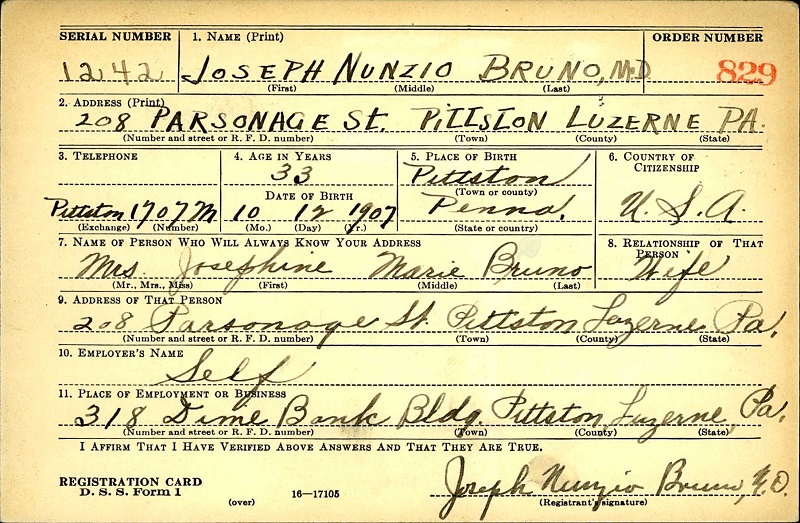 SERIAL NUMBER 1. NAME (Print) ORDER NUMBER
1242 JOSEPH NUNZIO BRUNO, M.D 829
(First) (Middle) (Last)
2. ADDRESS (Print)
208 PARSONAGE St. PITTSTON LUZERNE PA.
(Number and street or R. F. D. number) (Town) (County) (State)
3. TELEPHONE 4. AGE IN YEARS 5. PLACE OF BIRTH 6. COUNTRY OF CITIZENSHIP
33 Pittston
DATE OF BIRTH (Town or county)
Pittston 1707M 10 12 1907 Penna. U. S. A.
(Exchange) (Number) (Mo.) (Day) (Yr.) (State or country)
7. NAME OF PERSON WHO WILL ALWAYS KNOW YOUR ADDRESS 8. RELATIONSHIP OF THAT PERSON
Mrs. Josephine Marie Bruno Wife
(Mr., Mrs., Miss) (First) (Middle) (Last)
9. ADDRESS OF THAT PERSON
208 Parsonage St. Pittston Luzerne Pa.
(Number and street or R. F. D. number) (Town) (County) (State)
10. EMPLOYER'S NAME
Self
11. PLACE OF EMPLOYMENT OR BUSINESS
318 Dime Bank Bldg. Pittston Luzerne, Pa.
(Number and street or R. F. D. number) (Town) (County) (State)
I AFFIRM THAT I HAVE VERIFIED ABOVE ANSWERS AND THAT THEY ARE TRUE.
REGISTRATION CARD
D. S. S. Form 1 (over) 16—17105 Joseph Nunzio Bruno, M.D.
(Registrant's signature)